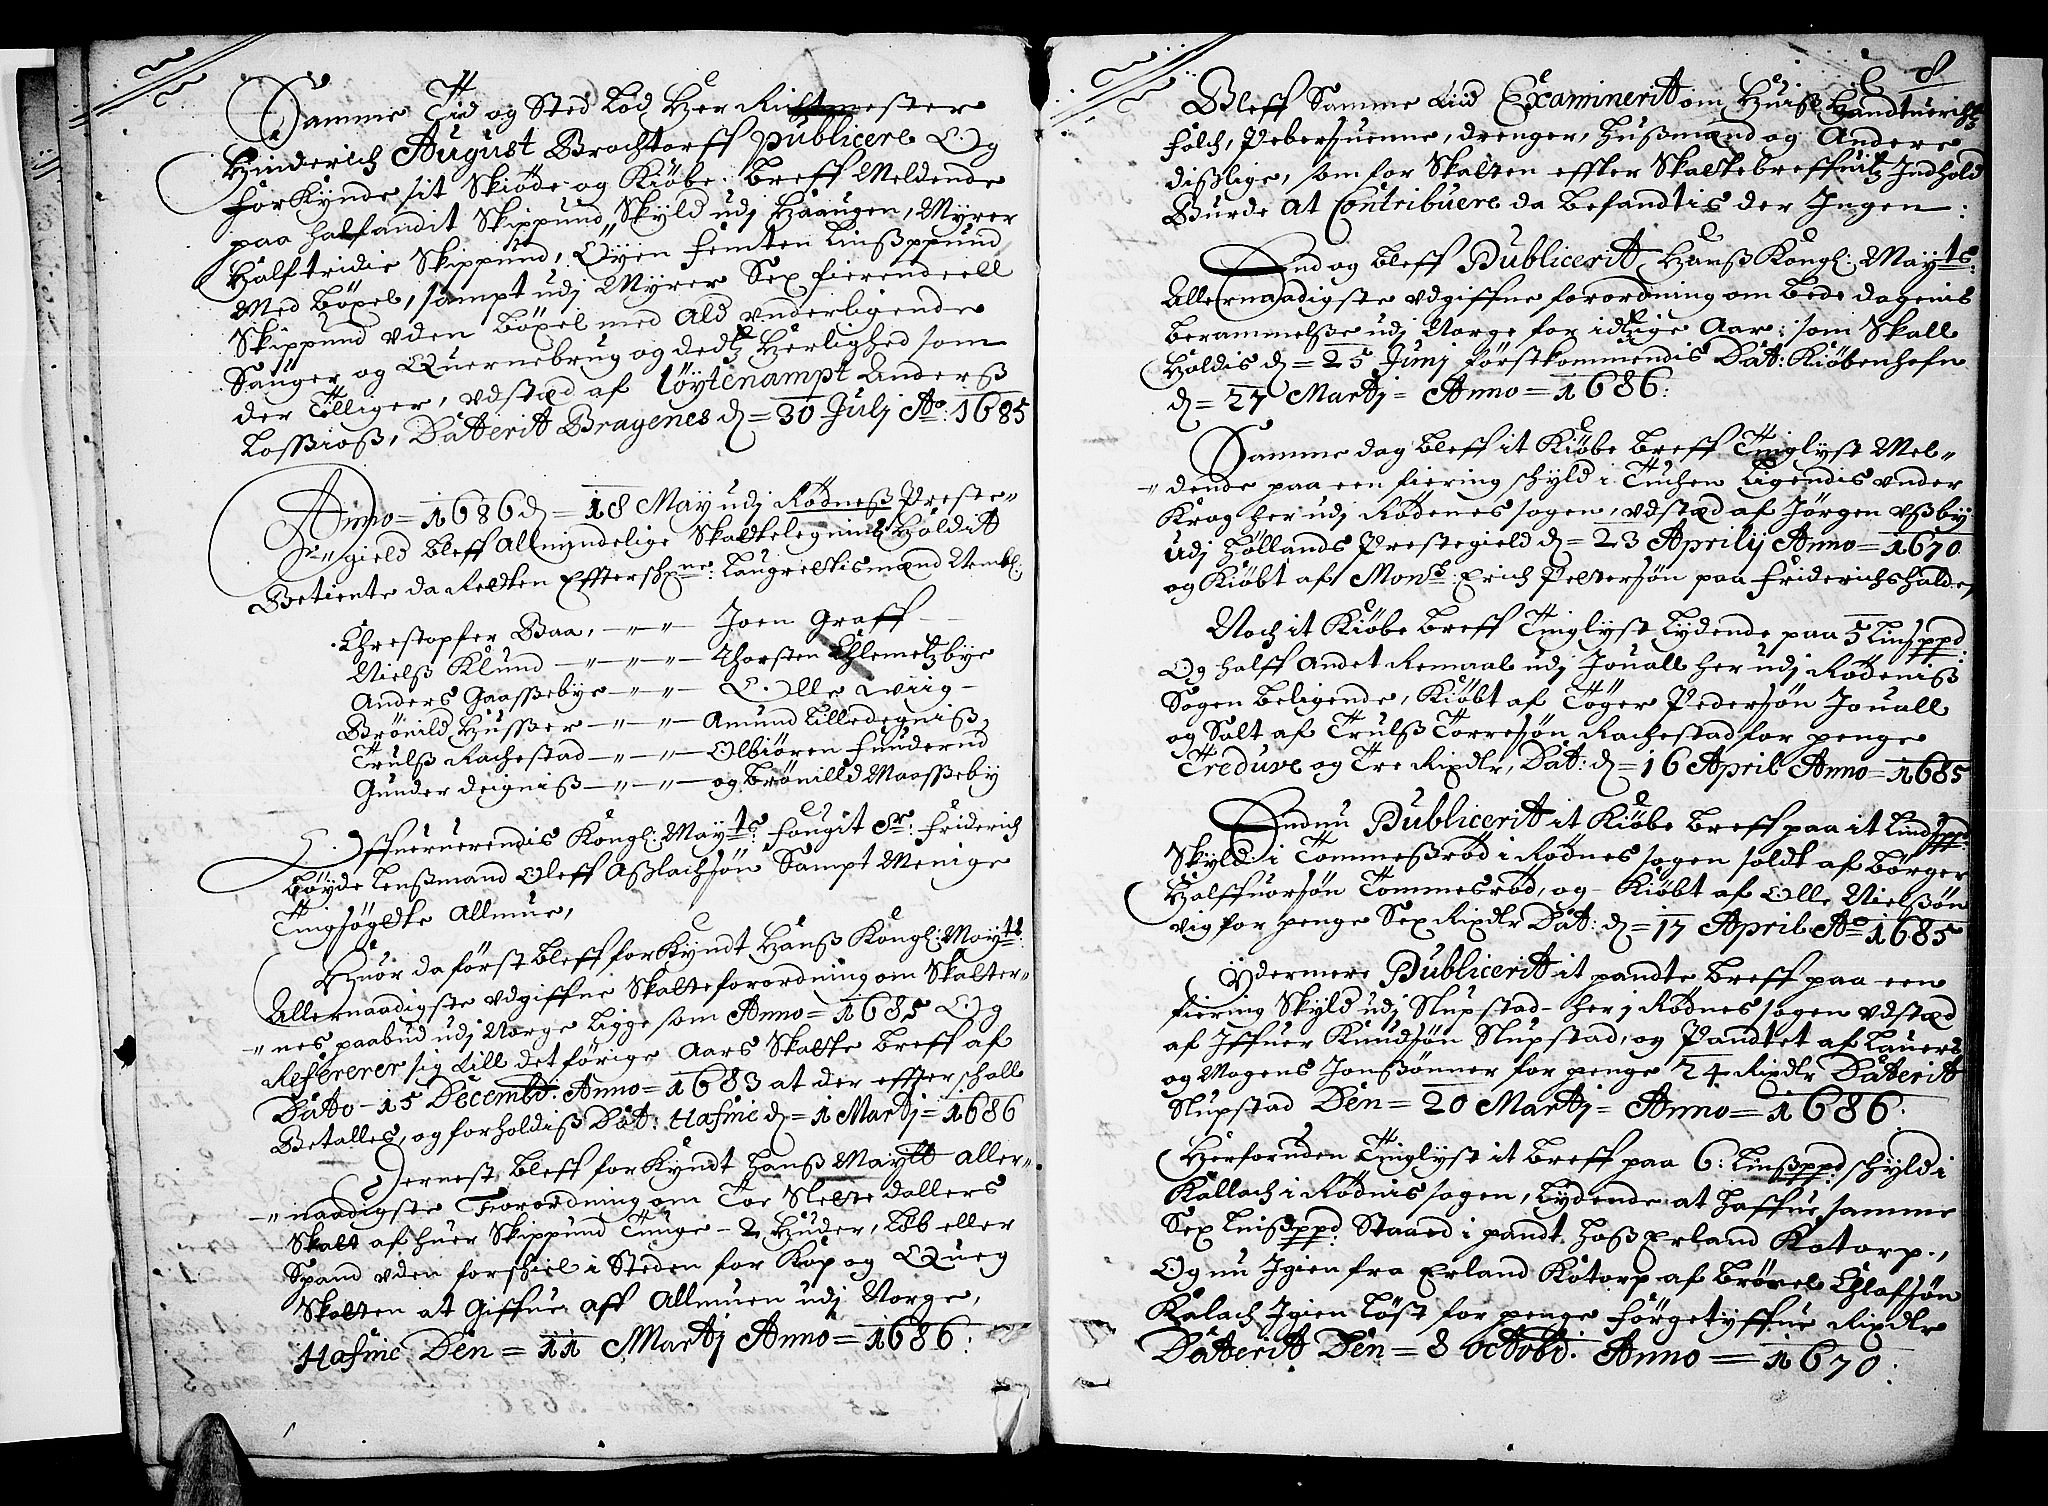 Samme Tid og Sted lod Her Ritmester
Hinderich August Brochtorff publicere Og
forKynde sit Skiøde og Kiøbe Breff Meldende
paa halfandit Skippund Skyld udj Haaugen, Myrer
Halftridie Skippund, Øyen femten Lißppund
Med Böxel, sampt udj Myrer Sex fierendeell
Skippund uden Böxel med Ald underligende
Sauger og Quernebrug og dedtz Herlighed som
der Tilliger, udstæd af löytenampt Anders
Loßioß, Datterit Bragenes d = 30 Julj Ao: 1685
Anno = 1686 d = 18 May udj Rödneß Preste„
„gield bleff Allmindelige Skadtelegning Holdit
Betiente da Retten Effterschne: Laugrettismænd Nembl:
Chrestopher Baa, – „ – „ – Joen Graff –
Nielß Klund – „ – „ – „ – Thorsten Chlemetzbye
Anders Gaaßebye – „ – „ – Olle Wiig –
Brönild Hußer – „ – „ – Amund Lilledegniß,
Trulß Rachestad – „ – „ – Olbiören Funderud
Gunder deigniß – „ – „ – og Brönilld Maaßeby
Offueruerendis Kongl: Mayts: fougit Sr: Friderich
Böyde Lenßmand Oleff Aßlachsön Sampt Menige
Tingsögdte Allmue,
Huor da först bleff forKyndt Hanß Kongl: Mayts:
Allernaadigste udgiffne Skatteforordning om Skatter„
„nes paabud udj Norge ligge som Anno = 1685 Og
Refererer sig till det forige Aars Skatte Breff af
Dato – 15 Decembr. Anno = 1683 at der effter schall
Betalles, og forholdiß Dat: Hafnie d = 1 Martj = 1686
Dernest bleff forKyndt Hanß Maytt aller„
„naadigste Forordning om Toe Slette dallers
Skatt af huer Skippund Tunge – 2 Huder, Löb eller
Spand uden forschiel i Steden for Kop og Queg
Skatten at Giffue aff Allmuen udj Norge,
Hafnie Den = 11 Martj Anno = 1686:
8
Bleff Samme tiid Examinerit om Huiß Handtuerichs
folch, Pebersuenne, drenger, Hußmænd og Andere
dißlige, som for Skatten effter Skattebreffuitz Jndhold
Burde at Contribuere da befandtis der Jngen:
End og bleff Publicerit Hanß Kongl: Mayts:
Allernaadigste udgiffne forordning om Bede dagenis
berammelße udj Norge for idtzige Aar: som Skall
Holdis d = 25 Junj förstkommendis Dat: Kiöbenhafn
d = 27 Martj = Anno = 1686:
Samme dag bleff it Kiöbe Breff Tinglyst Mel„
„dende paa een fiering schyld i Tuchen Ligendis under
Krog her udj Rödenes sogen, udstæd af Jörgen Ußby
udj Höllands Prestegield d = 23 Aprily Anno = 1670
og Kiöbt af Monsr: Erich Pettersön paa Friderichshalde,
Noch it Kiöbe breff Tinglyst Lydende paa 5 Lißppd:
Og halff Andet Remaal udj Jouall her udj Rödeniß
Sogen beligende, Kiöbt af Töger Pedersön Jouall
og Solt af Trulß Torresön Rachestad for penge
Treduve og Tre Rixdlr, Dat: d = 16 April Anno = 1685
Endnu Publicerit it Kiöbe Breff paa it Lindßppd:
Skyld i Tommeßröd i Rödnes sogen soldt af Börger
Halffuorsön Tommesröd, og Kiöbt af Olle Nielßön
vig for penge Sex Rixdlr Dat: d = 17 April Ao 1685
Ydermere Publicerit it pandte Breff paa een
fiering Skyld udj Slupstad – her j Rödnes sogen udstæd
af Jffuer Knudsön Slupstad, og Pandtet af Lauers
og Mogens Jonßönner for penge 24 Rixdlr Daterit
Slupstad Den = 20 Martj = Anno = 1686:
Herforuden Tinglyst it Breff paa 6: Lißppd: schyld i
Kallach i Rödnis sogen, Lydende at haffue samme
Sex Lißppd: Staaed i pandt hoß Erland Kotorp.,
Og nu Jgien fra Erland Kotorp af Brönel Olafsön
Kalach Jgien löst for penge förgetyffue Rixdlr
Datterit Den = 8 octobr. Anno = 1670: